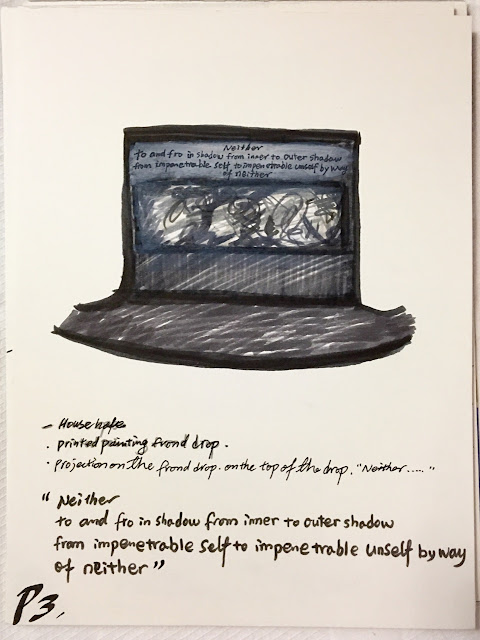 Neither
to and fro in shadow from inner to outer shadow
from impenetrable self to impenetrable unself by way
of neither
- House
. printed painting frond drop.
· projection on the frond drop. on the top of the drop. "Neither....."
" Neither
to and fro in shadow from inner to outer shadow
from impenetrable self to impenetrable unself by way
of neither "
P3.